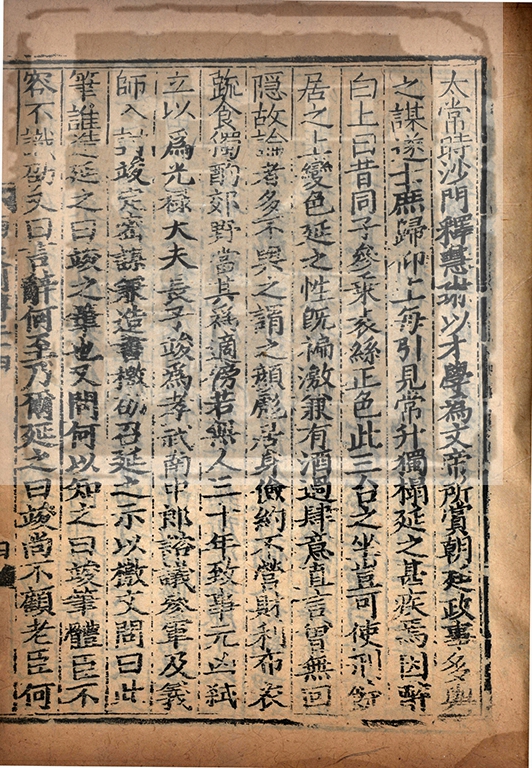 太常時沙門釋慧琳以才學為文帝所賞朝廷政事多與
之謀遂士庶歸仰上每引見常升獨榻延之甚疾焉因醉
白上曰昔同子參乘袁絲正色此三台之坐豈可使刑餘
居之上變色延之性旣褊激兼有酒過肆意直言曾無回
隱故論者多不與之謂之顏彪居身儉約不營財利布衣
蔬食獨酌郊野當其爲適傍若無人三十年致事元凶弑
立以爲光祿大夫長子竣爲孝武南中郎諮議參軍及義
師入討竣定密謀兼造書檄劭召延之示以檄文問曰此
筆誰造延之曰竣之筆也又問何以知之曰竣筆體臣不
容不識劭又曰言辭何至乃爾延之曰竣尚不顧老臣何